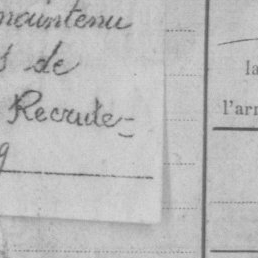 maintenu
de
Recrute-
la
l'ar